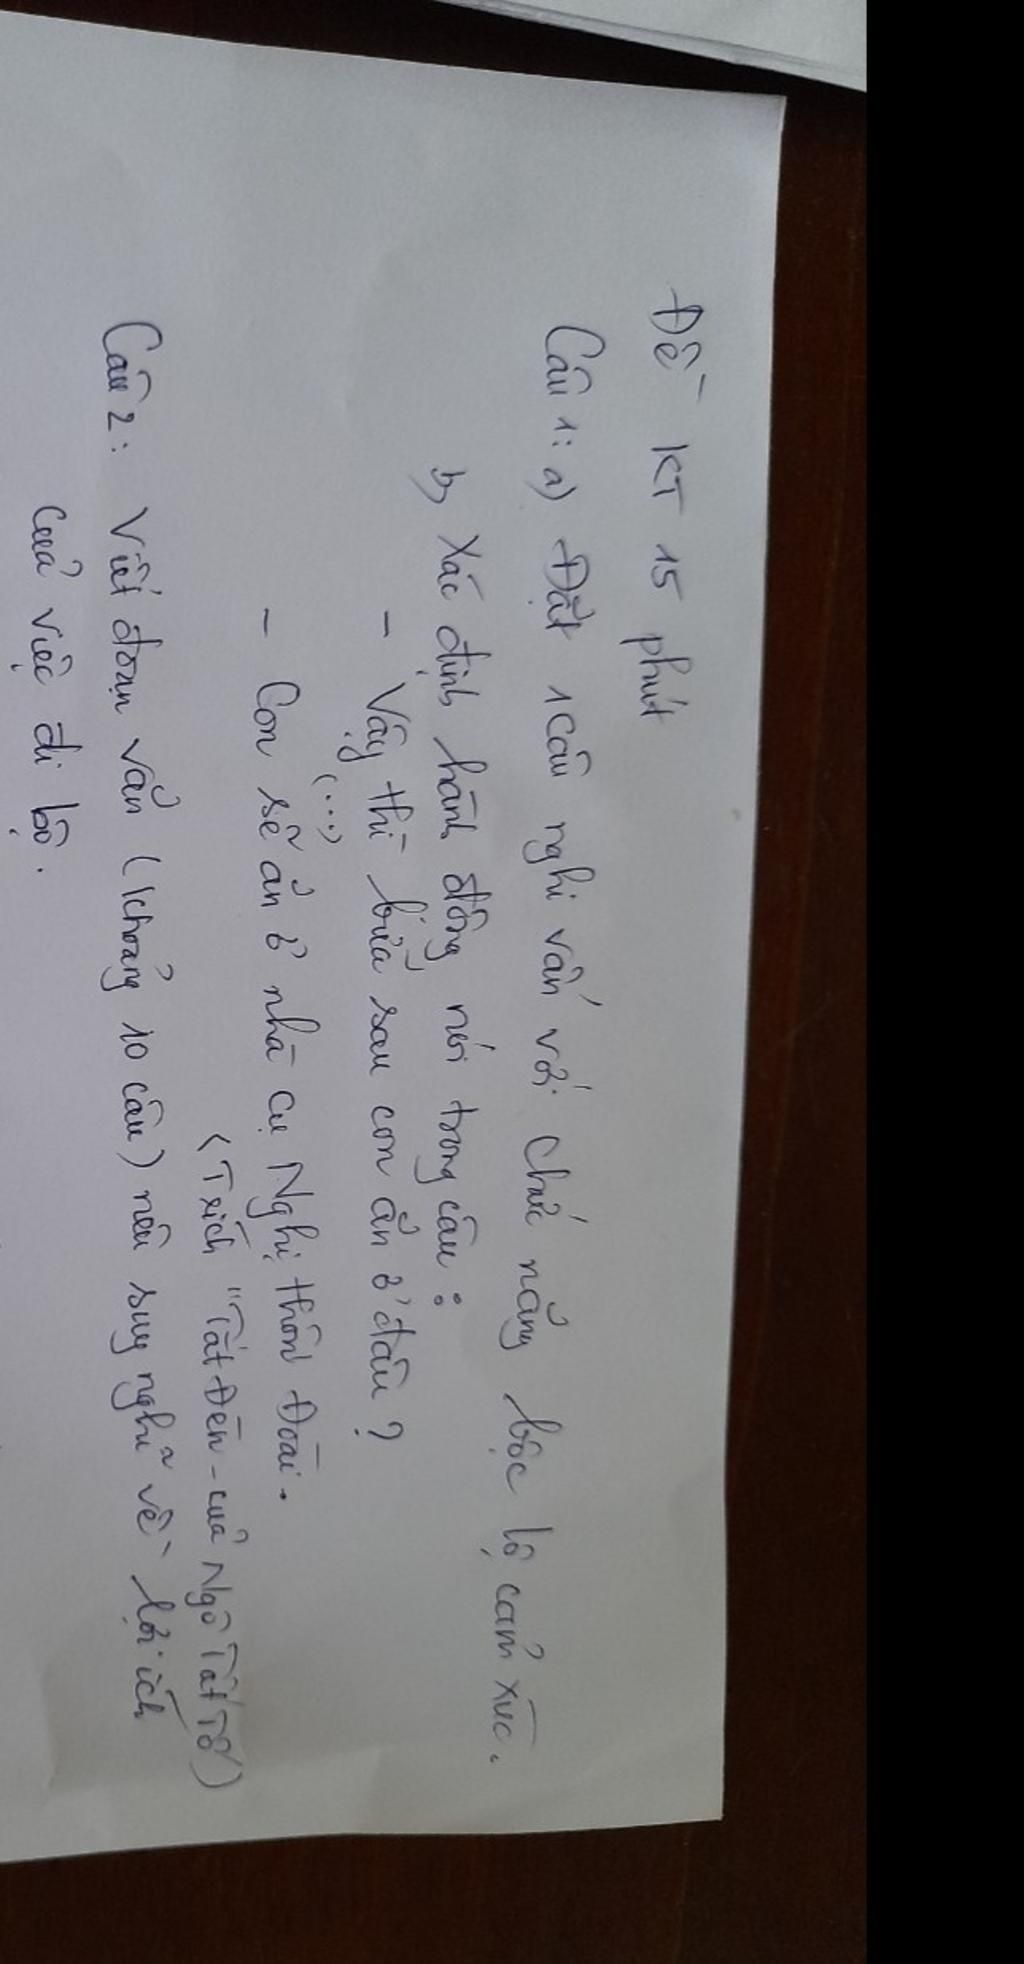 Đề KT 15 phút
Câu 1: a) Đặt 1 câu nghi vấn với chức năng bộc lộ cảm xúc.
b, Xác định hành động nói trong câu:
- Vậy thì bữa sau con ăn ở đâu?
(...)
- Con sẽ ăn ở nhà cụ Nghị thôn Đoài.
(Trích "Tắt Đèn - của Ngô Tất Tố)
Câu 2: Viết đoạn văn (khoảng 10 câu) nêu suy nghĩ về lợi ích
của việc đi bộ.